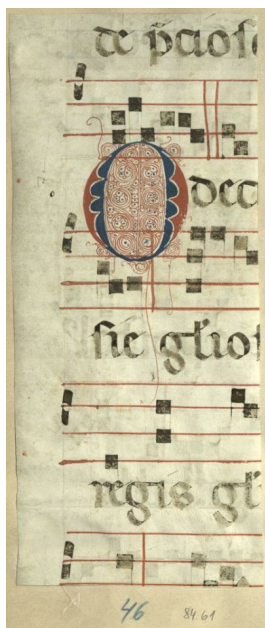 de p̄ciose
O dec
sie gl̄io
regis gl̄
46 84.61